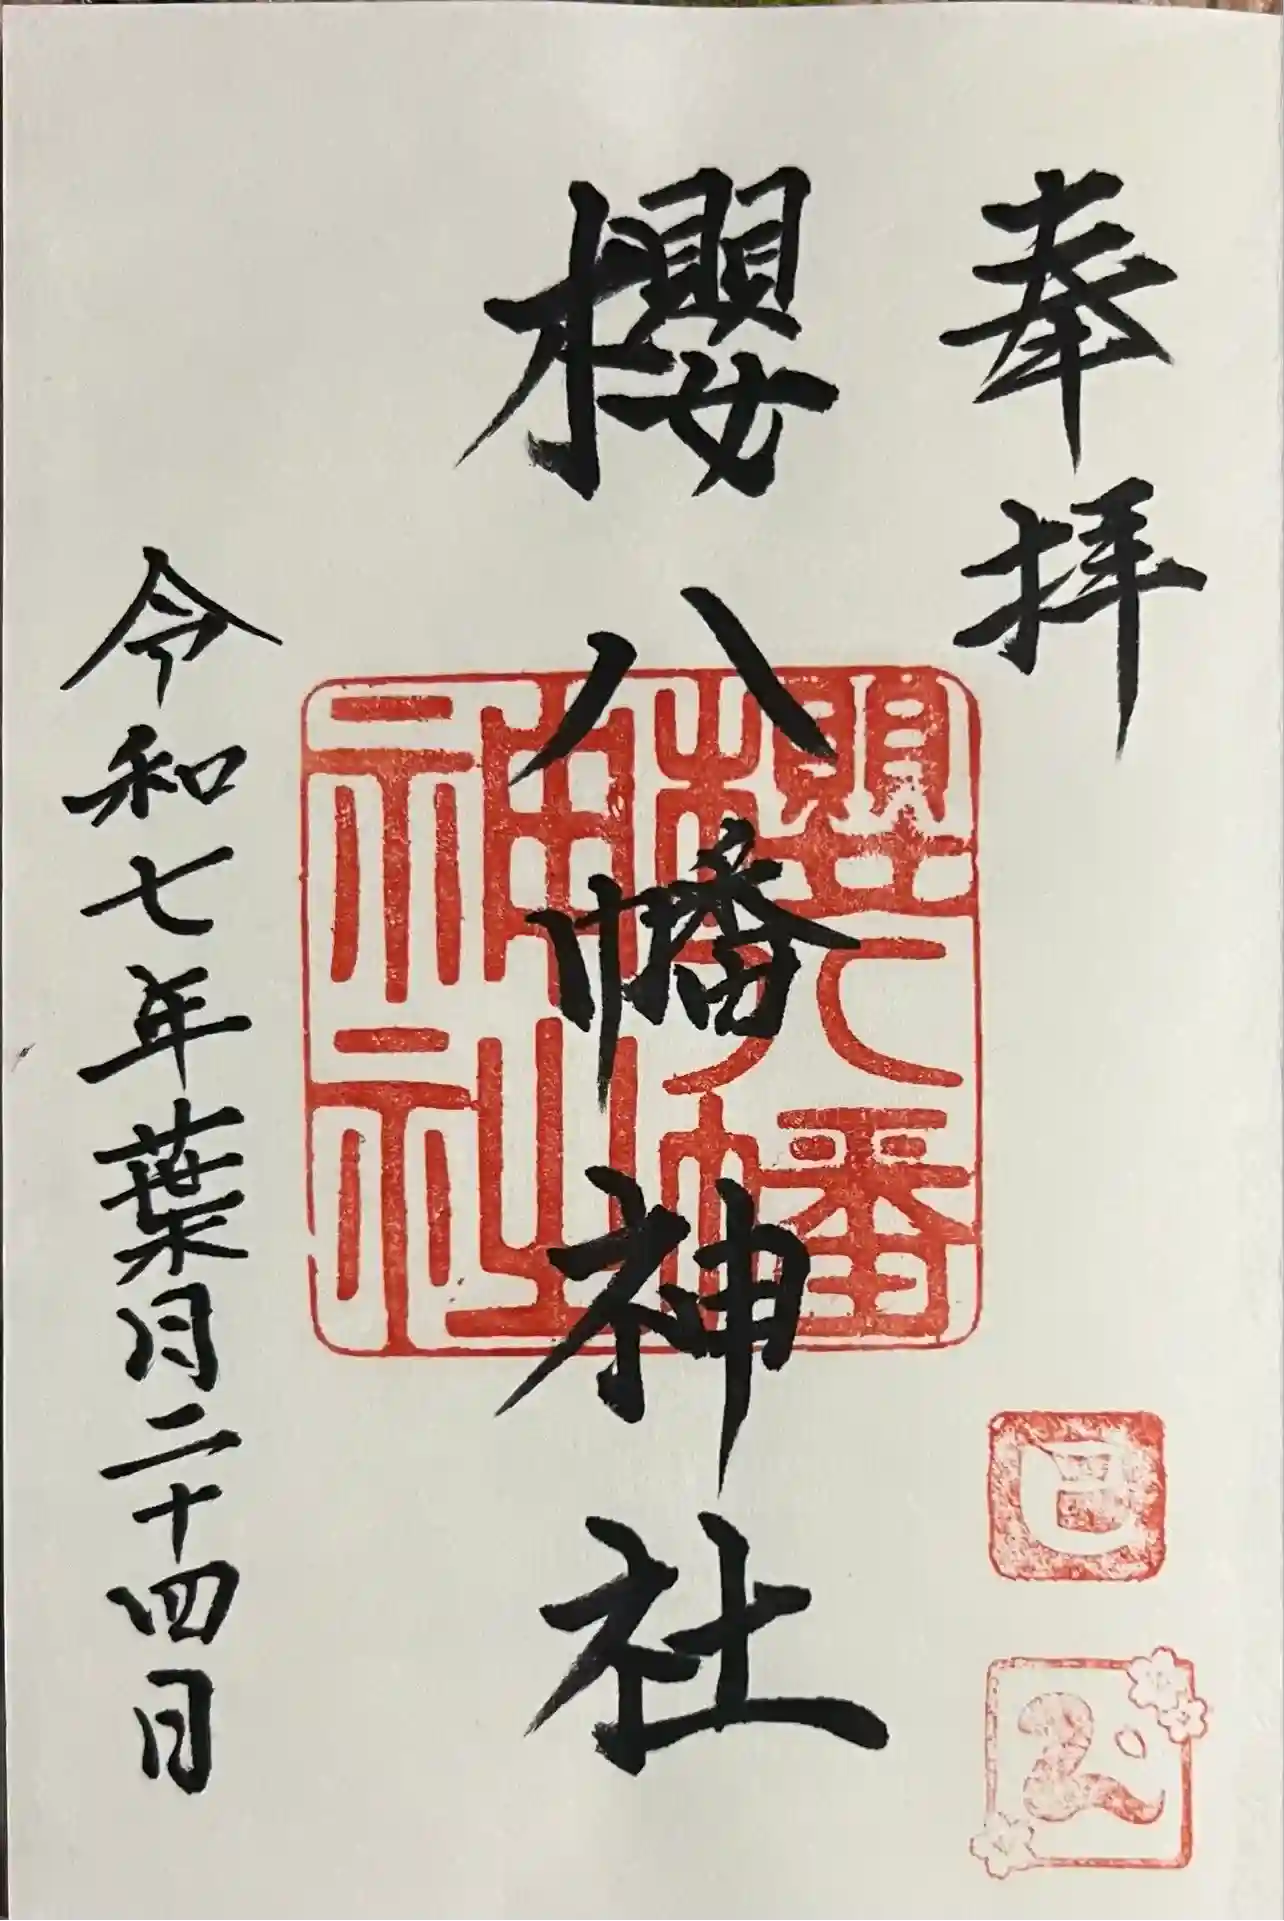 奉拝
櫻八幡神社
櫻八幡
神社
巳
令和七年葉月二十四日